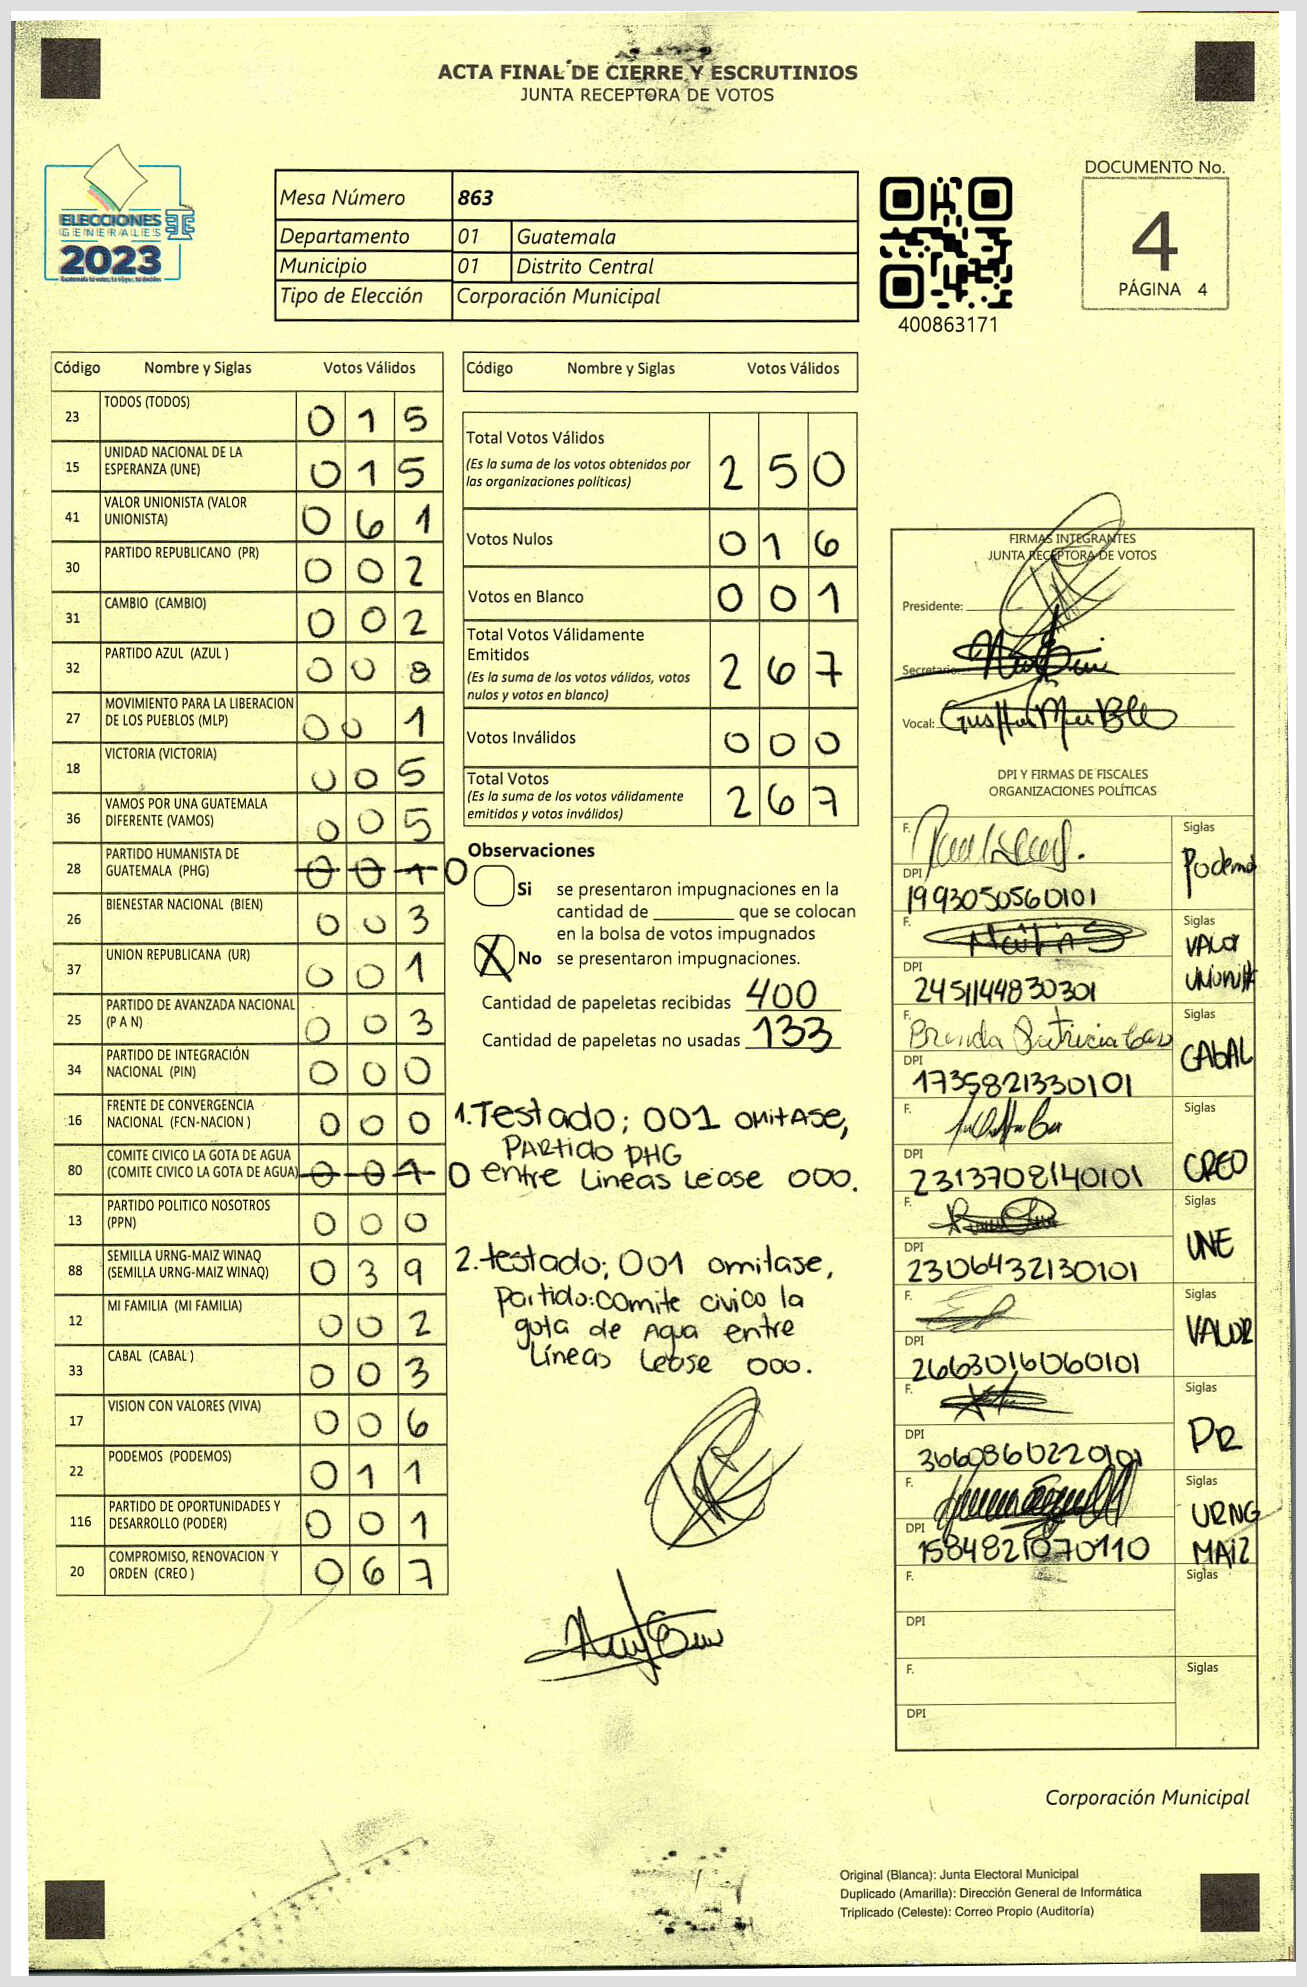 ACTA FINAL DE CIERRE Y ESCRUTINIOS
JUNTA RECEPTORA DE VOTOS
ELECCIONES
GENERALES
2023
Mesa Número 863
Departamento 01 Guatemala
Municipio 01 Distrito Central
Tipo de Elección Corporación Municipal
400863171
DOCUMENTO No.
4
PÁGINA 4
Código Nombre y Siglas Votos Válidos
23 TODOS (TODOS) 0 1 5
15 UNIDAD NACIONAL DE LA ESPERANZA (UNE) 0 1 5
41 VALOR UNIONISTA (VALOR UNIONISTA) 0 6 1
30 PARTIDO REPUBLICANO (PR) 0 0 2
31 CAMBIO (CAMBIO) 0 0 2
32 PARTIDO AZUL (AZUL ) 0 0 8
27 MOVIMIENTO PARA LA LIBERACION DE LOS PUEBLOS (MLP) 0 0 1
18 VICTORIA (VICTORIA) 0 0 5
36 VAMOS POR UNA GUATEMALA DIFERENTE (VAMOS) 0 0 5
28 PARTIDO HUMANISTA DE GUATEMALA (PHG) 0 0 1 0
26 BIENESTAR NACIONAL (BIEN) 0 0 3
37 UNION REPUBLICANA (UR) 0 0 1
25 PARTIDO DE AVANZADA NACIONAL (P A N) 0 0 3
34 PARTIDO DE INTEGRACIÓN NACIONAL (PIN) 0 0 0
16 FRENTE DE CONVERGENCIA NACIONAL (FCN-NACION ) 0 0 0
80 COMITE CIVICO LA GOTA DE AGUA (COMITE CIVICO LA GOTA DE AGUA) 0 0 1 0
13 PARTIDO POLITICO NOSOTROS (PPN) 0 0 0
88 SEMILLA URNG-MAIZ WINAQ (SEMILLA URNG-MAIZ WINAQ) 0 3 9
12 MI FAMILIA (MI FAMILIA) 0 0 2
33 CABAL (CABAL ) 0 0 3
17 VISION CON VALORES (VIVA) 0 0 6
22 PODEMOS (PODEMOS) 0 1 1
116 PARTIDO DE OPORTUNIDADES Y DESARROLLO (PODER) 0 0 1
20 COMPROMISO, RENOVACION Y ORDEN (CREO ) 0 6 7
Código Nombre y Siglas Votos Válidos
Total Votos Válidos
(Es la suma de los votos obtenidos por
las organizaciones políticas) 2 5 0
Votos Nulos 0 1 6
Votos en Blanco 0 0 1
Total Votos Válidamente
Emitidos
(Es la suma de los votos válidos, votos
nulos y votos en blanco) 2 6 7
Votos Inválidos 0 0 0
Total Votos
(Es la suma de los votos válidamente
emitidos y votos inválidos) 2 6 7
Observaciones
Si se presentaron impugnaciones en la
cantidad de ________ que se colocan
en la bolsa de votos impugnados
X No se presentaron impugnaciones.
Cantidad de papeletas recibidas 400
Cantidad de papeletas no usadas 133
1. Testado; 001 omitase,
Partido PHG
entre Lineas Lease 000.
2. testado; 001 omitase,
Partido: comite civico la
gota de Agua entre
Líneas Lease 000.
FIRMAS INTEGRANTES
JUNTA RECEPTORA DE VOTOS
Presidente:
Secretario:
Vocal:
DPI Y FIRMAS DE FISCALES
ORGANIZACIONES POLÍTICAS
F. Siglas
DPI Podemos
1993050560101
F. Siglas
VALOR
DPI Unionista
2451144830301
F. Brenda Patricia Siglas
DPI CABAL
1735821330101
F. Siglas
DPI CREO
2313708140101
F. Siglas
DPI UNE
2306432130101
F. Siglas
DPI VALOR
2663016060101
F. Siglas
DPI PR
3660860220101
F. Siglas
URNG
DPI MAIZ
1584821070110
F. Siglas
DPI
F. Siglas
DPI
Corporación Municipal
Original (Blanca): Junta Electoral Municipal
Duplicado (Amarilla): Dirección General de Informática
Triplicado (Celeste): Correo Propio (Auditoría)